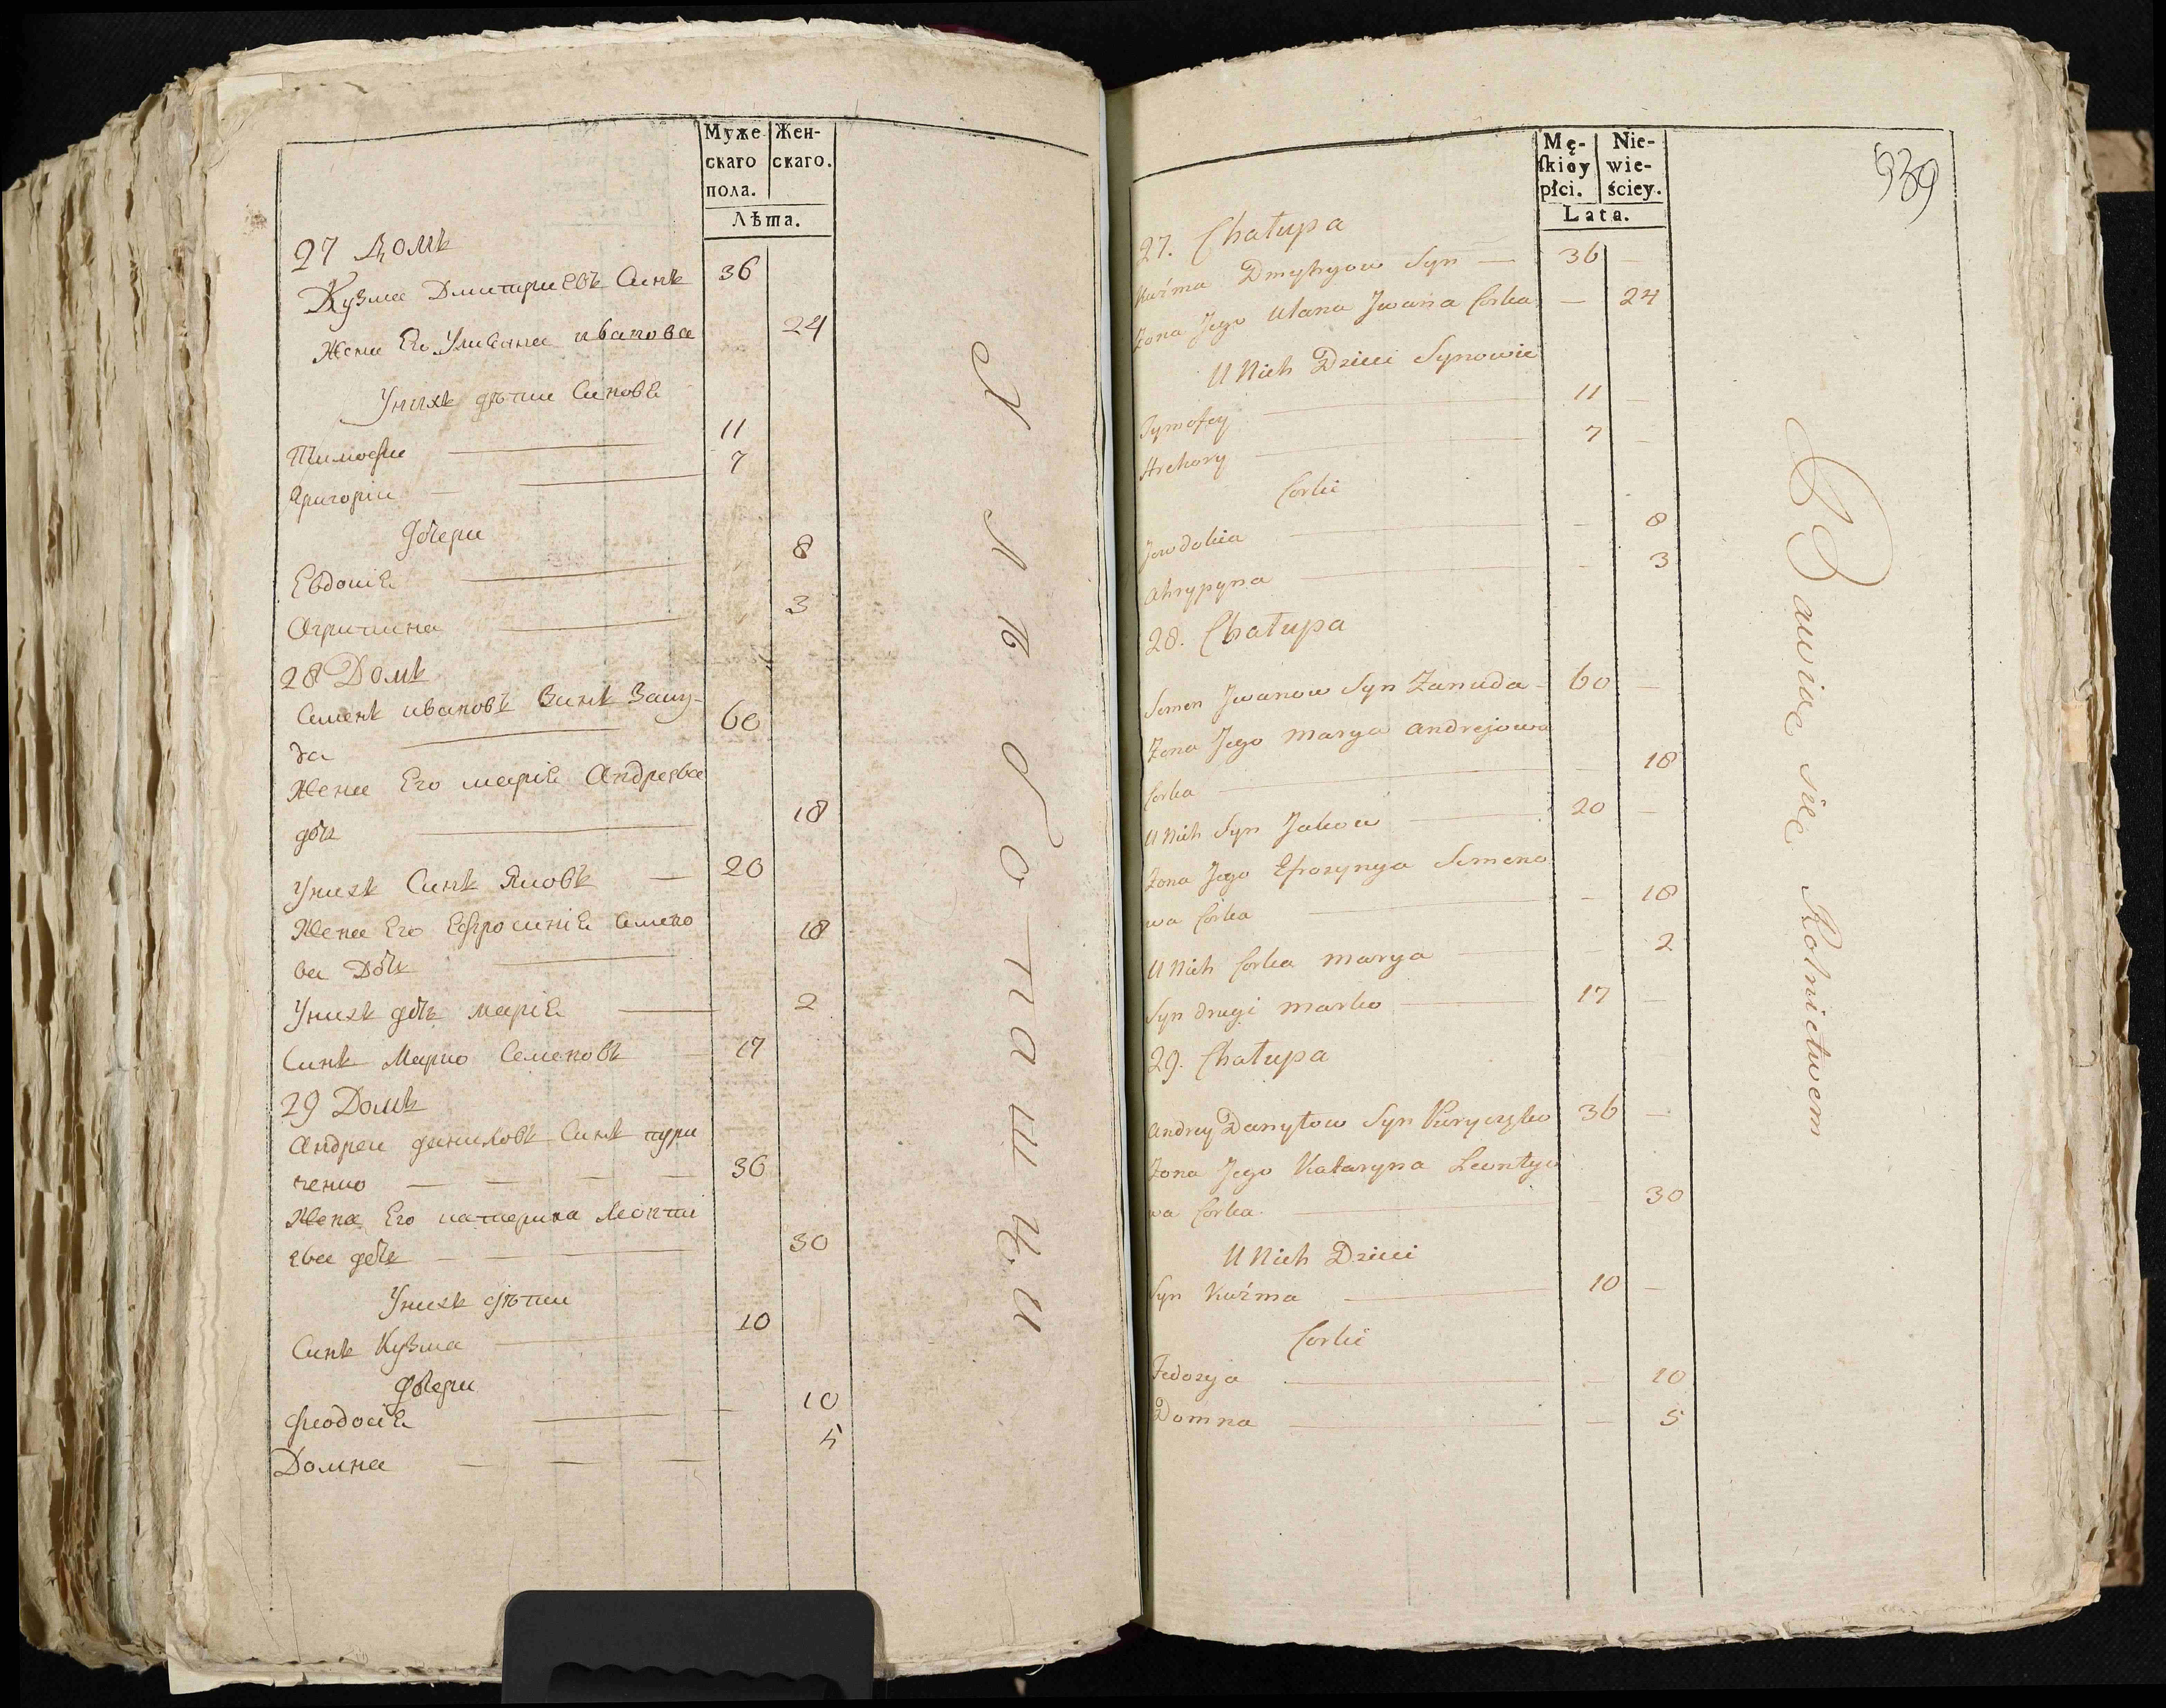 Муже-
скаго
пола.
Жен-
скаго.
Лѣта.
27 Домъ
Кузма Дмитриевъ Синъ 36
Жена Его Улиана иванова 24
Унихъ дѣти Синове
Тимофи 11
Григорiи 7
дочери
Евдокiя 8
Агрипина 3
28 Домъ
Семенъ ивановъ Синъ Зану-
да 60
Жена Его марiя Андреева
дочъ 18
Унихъ Синъ Яковъ 20
Жена Его Ефросинiя Семено
ва Дочъ 18
Унихъ дочъ марiя 2
Синъ Марко Семеновъ 17
29 Домъ
Андреи даниловъ Синъ кури
ченко 36
Жена Его катерина Леонти
ева дочъ 30
Унихъ дѣти
Синъ Кузма 10
Дочери
Феодосiя 10
Домна 5
Хлѣбопашцы
Mę-
skiey
płci.
Nie-
wie-
ściey.
Lata.
939
27. Chałupa
Kuźma Dmytryow Syn — 36 —
Zona Jego Ulana Jwana Corka — 24
U Nich Dzieci Synowie
Tymofey 11 —
Hrehory 7 —
Corki
Jewdokia — 8
Ahrypyna — 3
28. Chałupa
Semen Jwanow Syn Zanuda — 60 —
Zona Jego Marya Andrejowa
Corka — 18
U Nich Syn Jakow 20 —
Zona Jego Efrozynya Semeno
wa Corka — 18
U Nich Corka Marya — 2
Syn drugi Marko 17 —
29. Chałupa
Andrey Danyłow Syn Kuryczko 36 —
Zona Jego Kataryna Leontyo
wa Corka — 30
U Nich Dzieci
Syn Kuźma 10 —
Corki
Fedozya — 10
Domna — 5
Bawiące się Rolnictwem